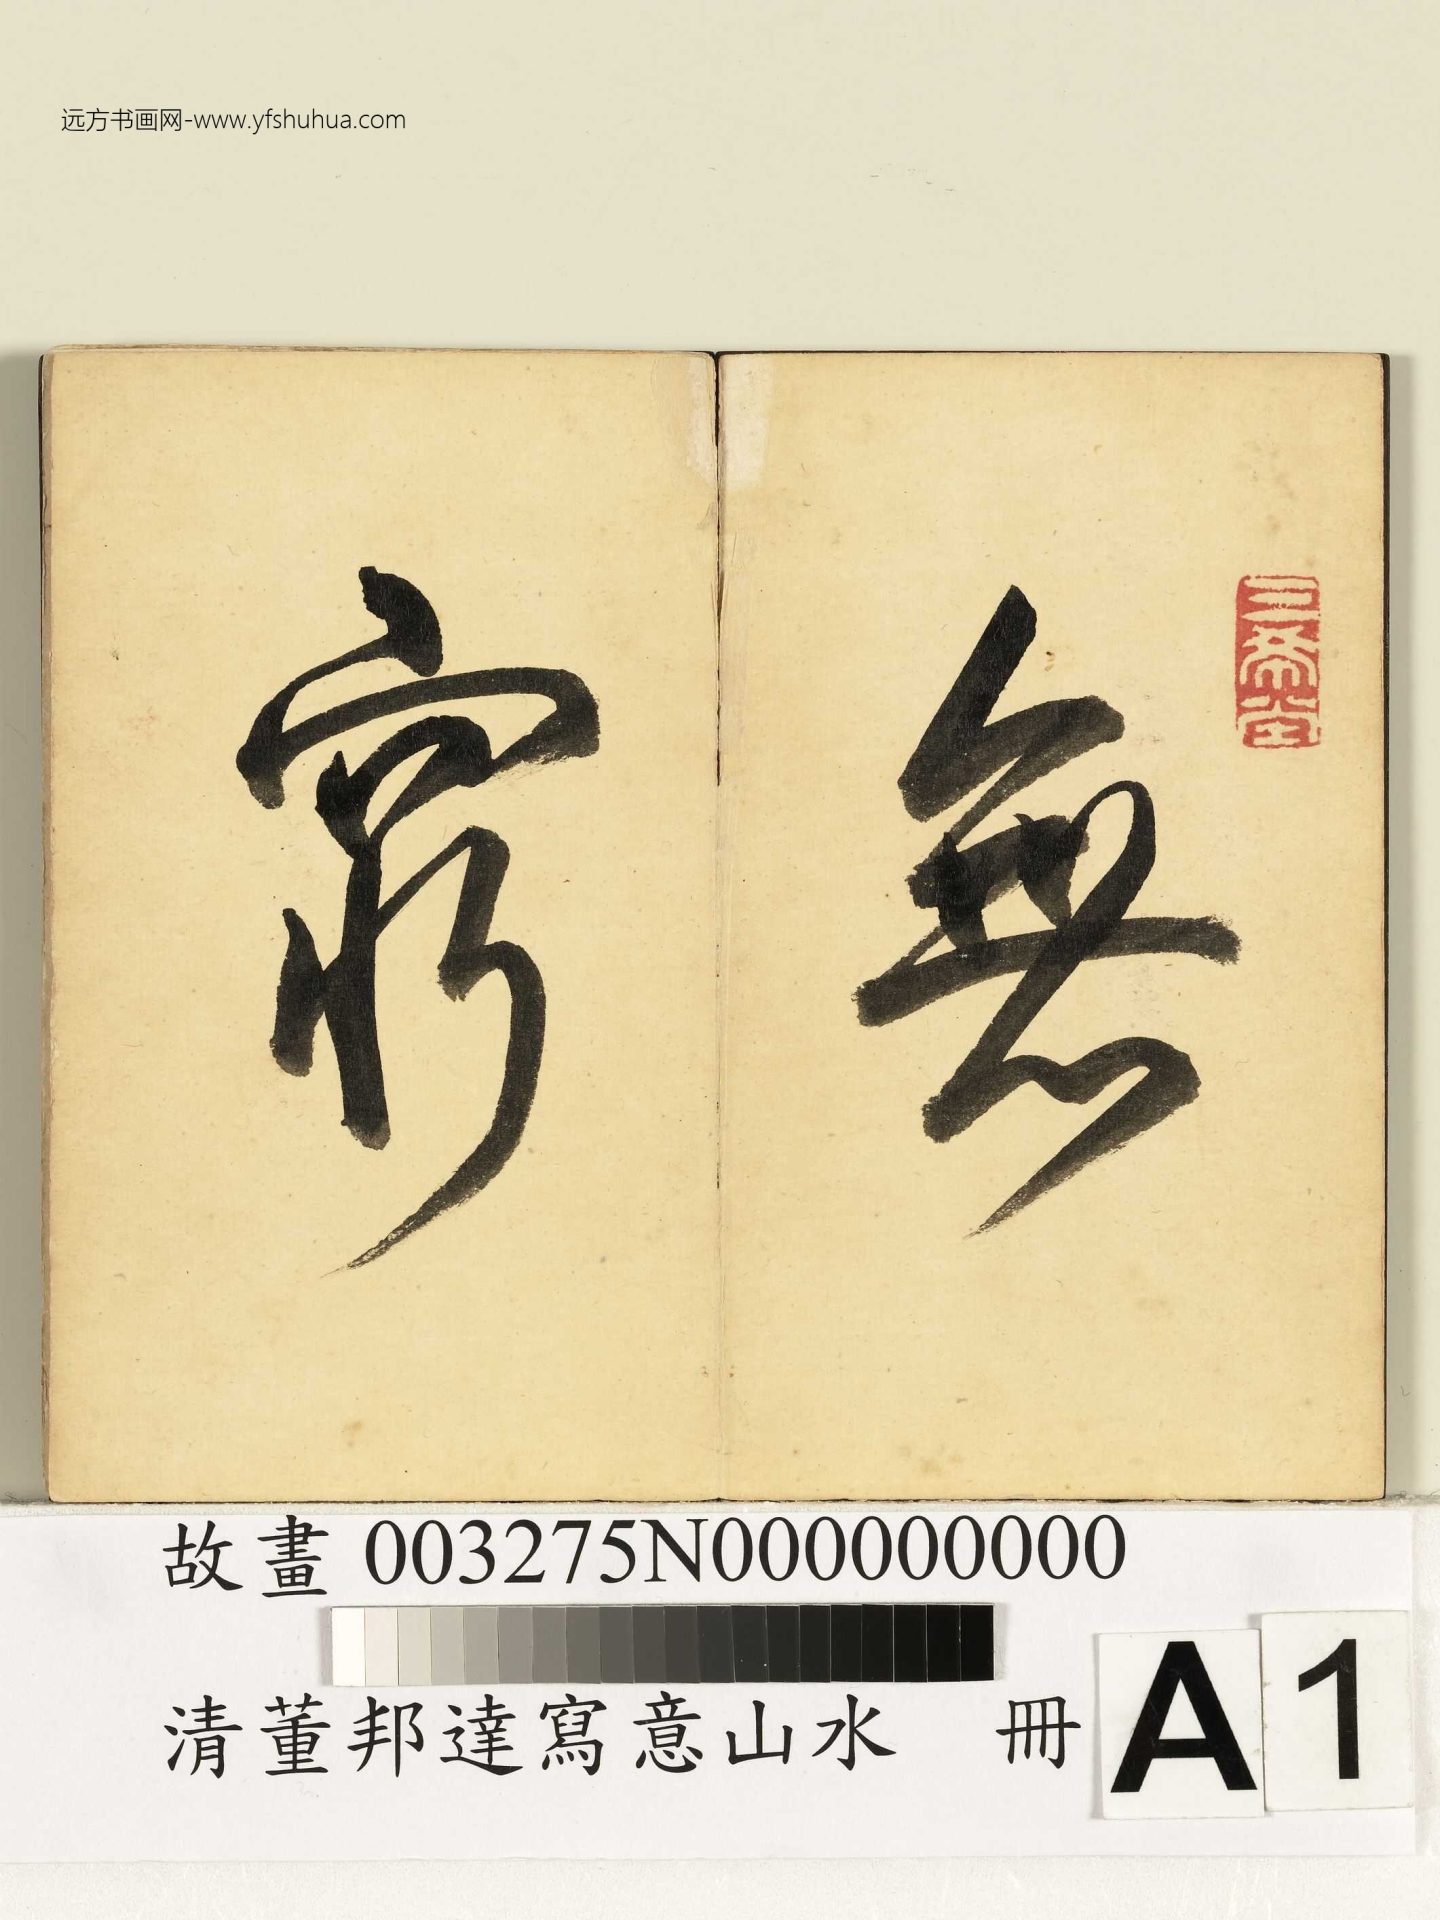 远方书画网-www.yfshuhua.com
無
窮
三希堂
故畫 003275N000000000
清董邦達寫意山水 冊
A 1